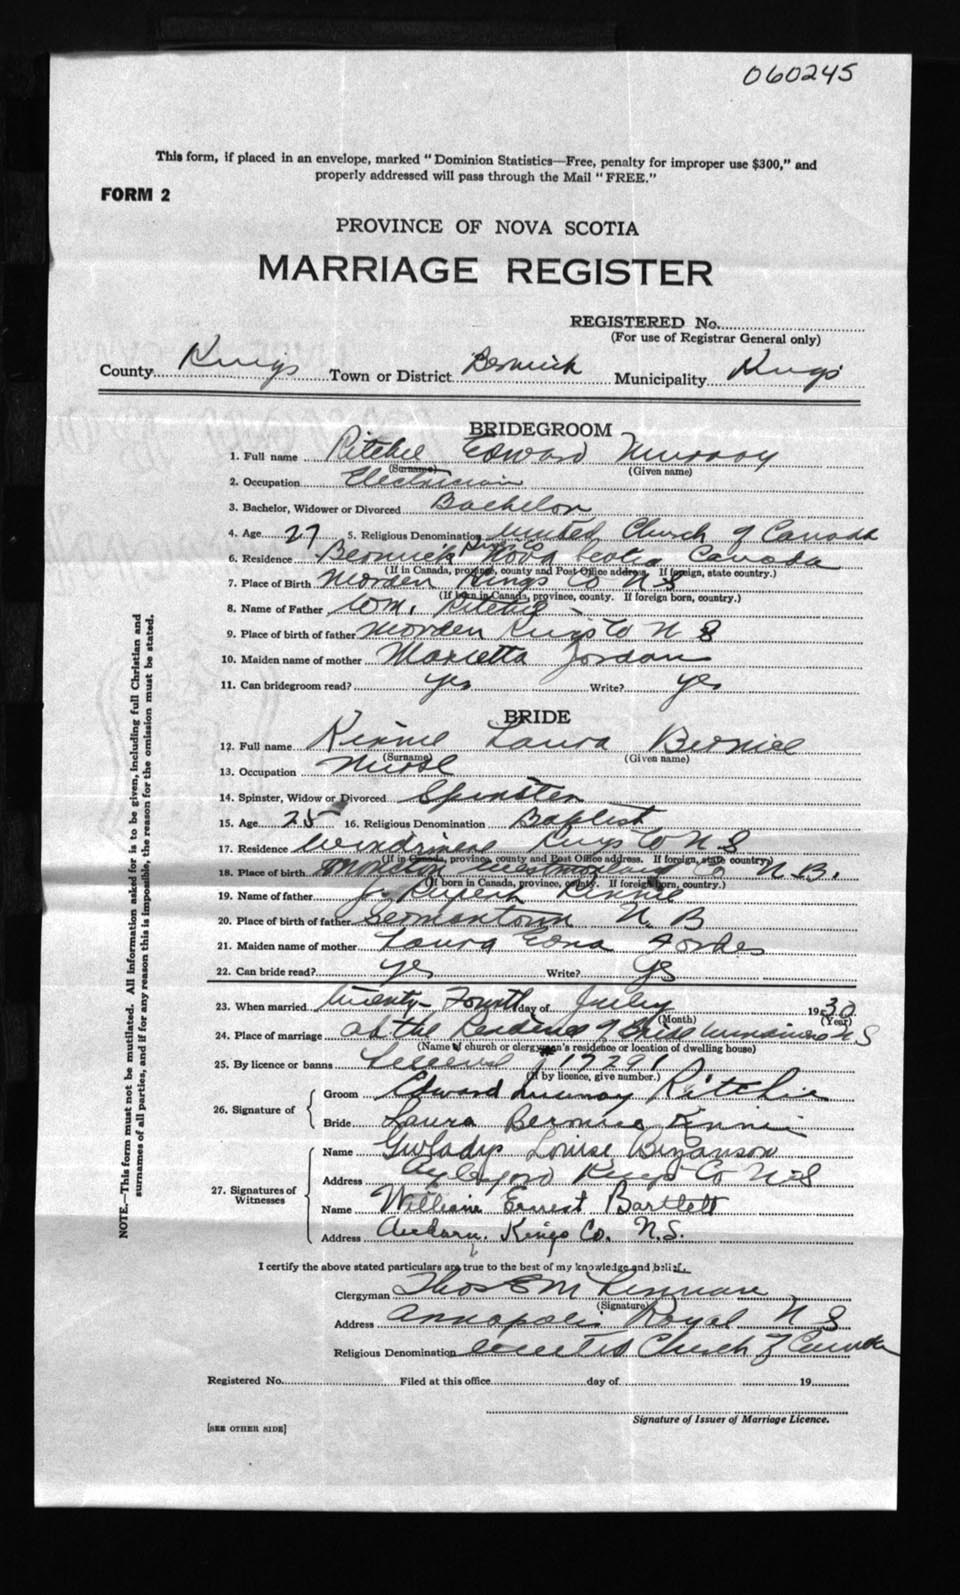 060245
This form, if placed in an envelope, marked "Dominion Statistics—Free, penalty for improper use $300," and
properly addressed will pass through the Mail "FREE."
FORM 2
PROVINCE OF NOVA SCOTIA
MARRIAGE REGISTER
REGISTERED No.
(For use of Registrar General only)
County Kings Town or District Berwick Municipality Kings
BRIDEGROOM
1. Full name Ritchie Edward Murray
(Surname) (Given name)
2. Occupation Electrician
3. Bachelor, Widower or Divorced Bachelor
4. Age 27 5. Religious Denomination United Church of Canada
6. Residence Berwick Kings Co Nova Scotia Canada
(If in Canada, province, county and Post Office address. If foreign, state country.)
7. Place of Birth Morden Kings Co N S
(If born in Canada, province, county. If foreign born, country.)
8. Name of Father Wm. Ritchie
9. Place of birth of father Morden Kings Co N S
10. Maiden name of mother Marietta Jordan
11. Can bridegroom read? yes Write? yes
BRIDE
12. Full name Kinnie Laura Bernice
(Surname) (Given name)
13. Occupation Nurse
14. Spinster, Widow or Divorced Spinster
15. Age 25 16. Religious Denomination Baptist
17. Residence Kings Co N S
(If in Canada, province, county and Post Office address. If foreign, state country)
18. Place of birth Moncton Westmorland Co N.B.
(If born in Canada, province, county. If foreign born, country.)
19. Name of father J. Rupert Kinnie
20. Place of birth of father N B
21. Maiden name of mother Laura Edna Forbes
22. Can bride read? yes Write? yes
23. When married twenty-Fourth day of July 1930
(Month) (Year)
24. Place of marriage at the Residence of Bride N S
(Name of church or clergyman's residence or location of dwelling house)
25. By licence or banns
(If by licence, give number.)
26. Signature of Groom Edward Murray Ritchie
Bride Laura Bernice Kinnie
27. Signatures of Witnesses Name Gwladys Louise Bezanson
Address Aylesford Kings Co N S
Name William Ernest Bartlett
Address Auburn, Kings Co. N.S.
I certify the above stated particulars are true to the best of my knowledge and belief.
Clergyman Thos
(Signature)
Address Annapolis Royal N S
Religious Denomination United Church of Canada
Registered No. Filed at this office day of 19
Signature of Issuer of Marriage Licence.
[SEE OTHER SIDE]
NOTE.—This form must not be mutilated. All information asked for is to be given, including full Christian and
surnames of all parties, and if for any reason this is impossible, the reason for the omission must be stated.